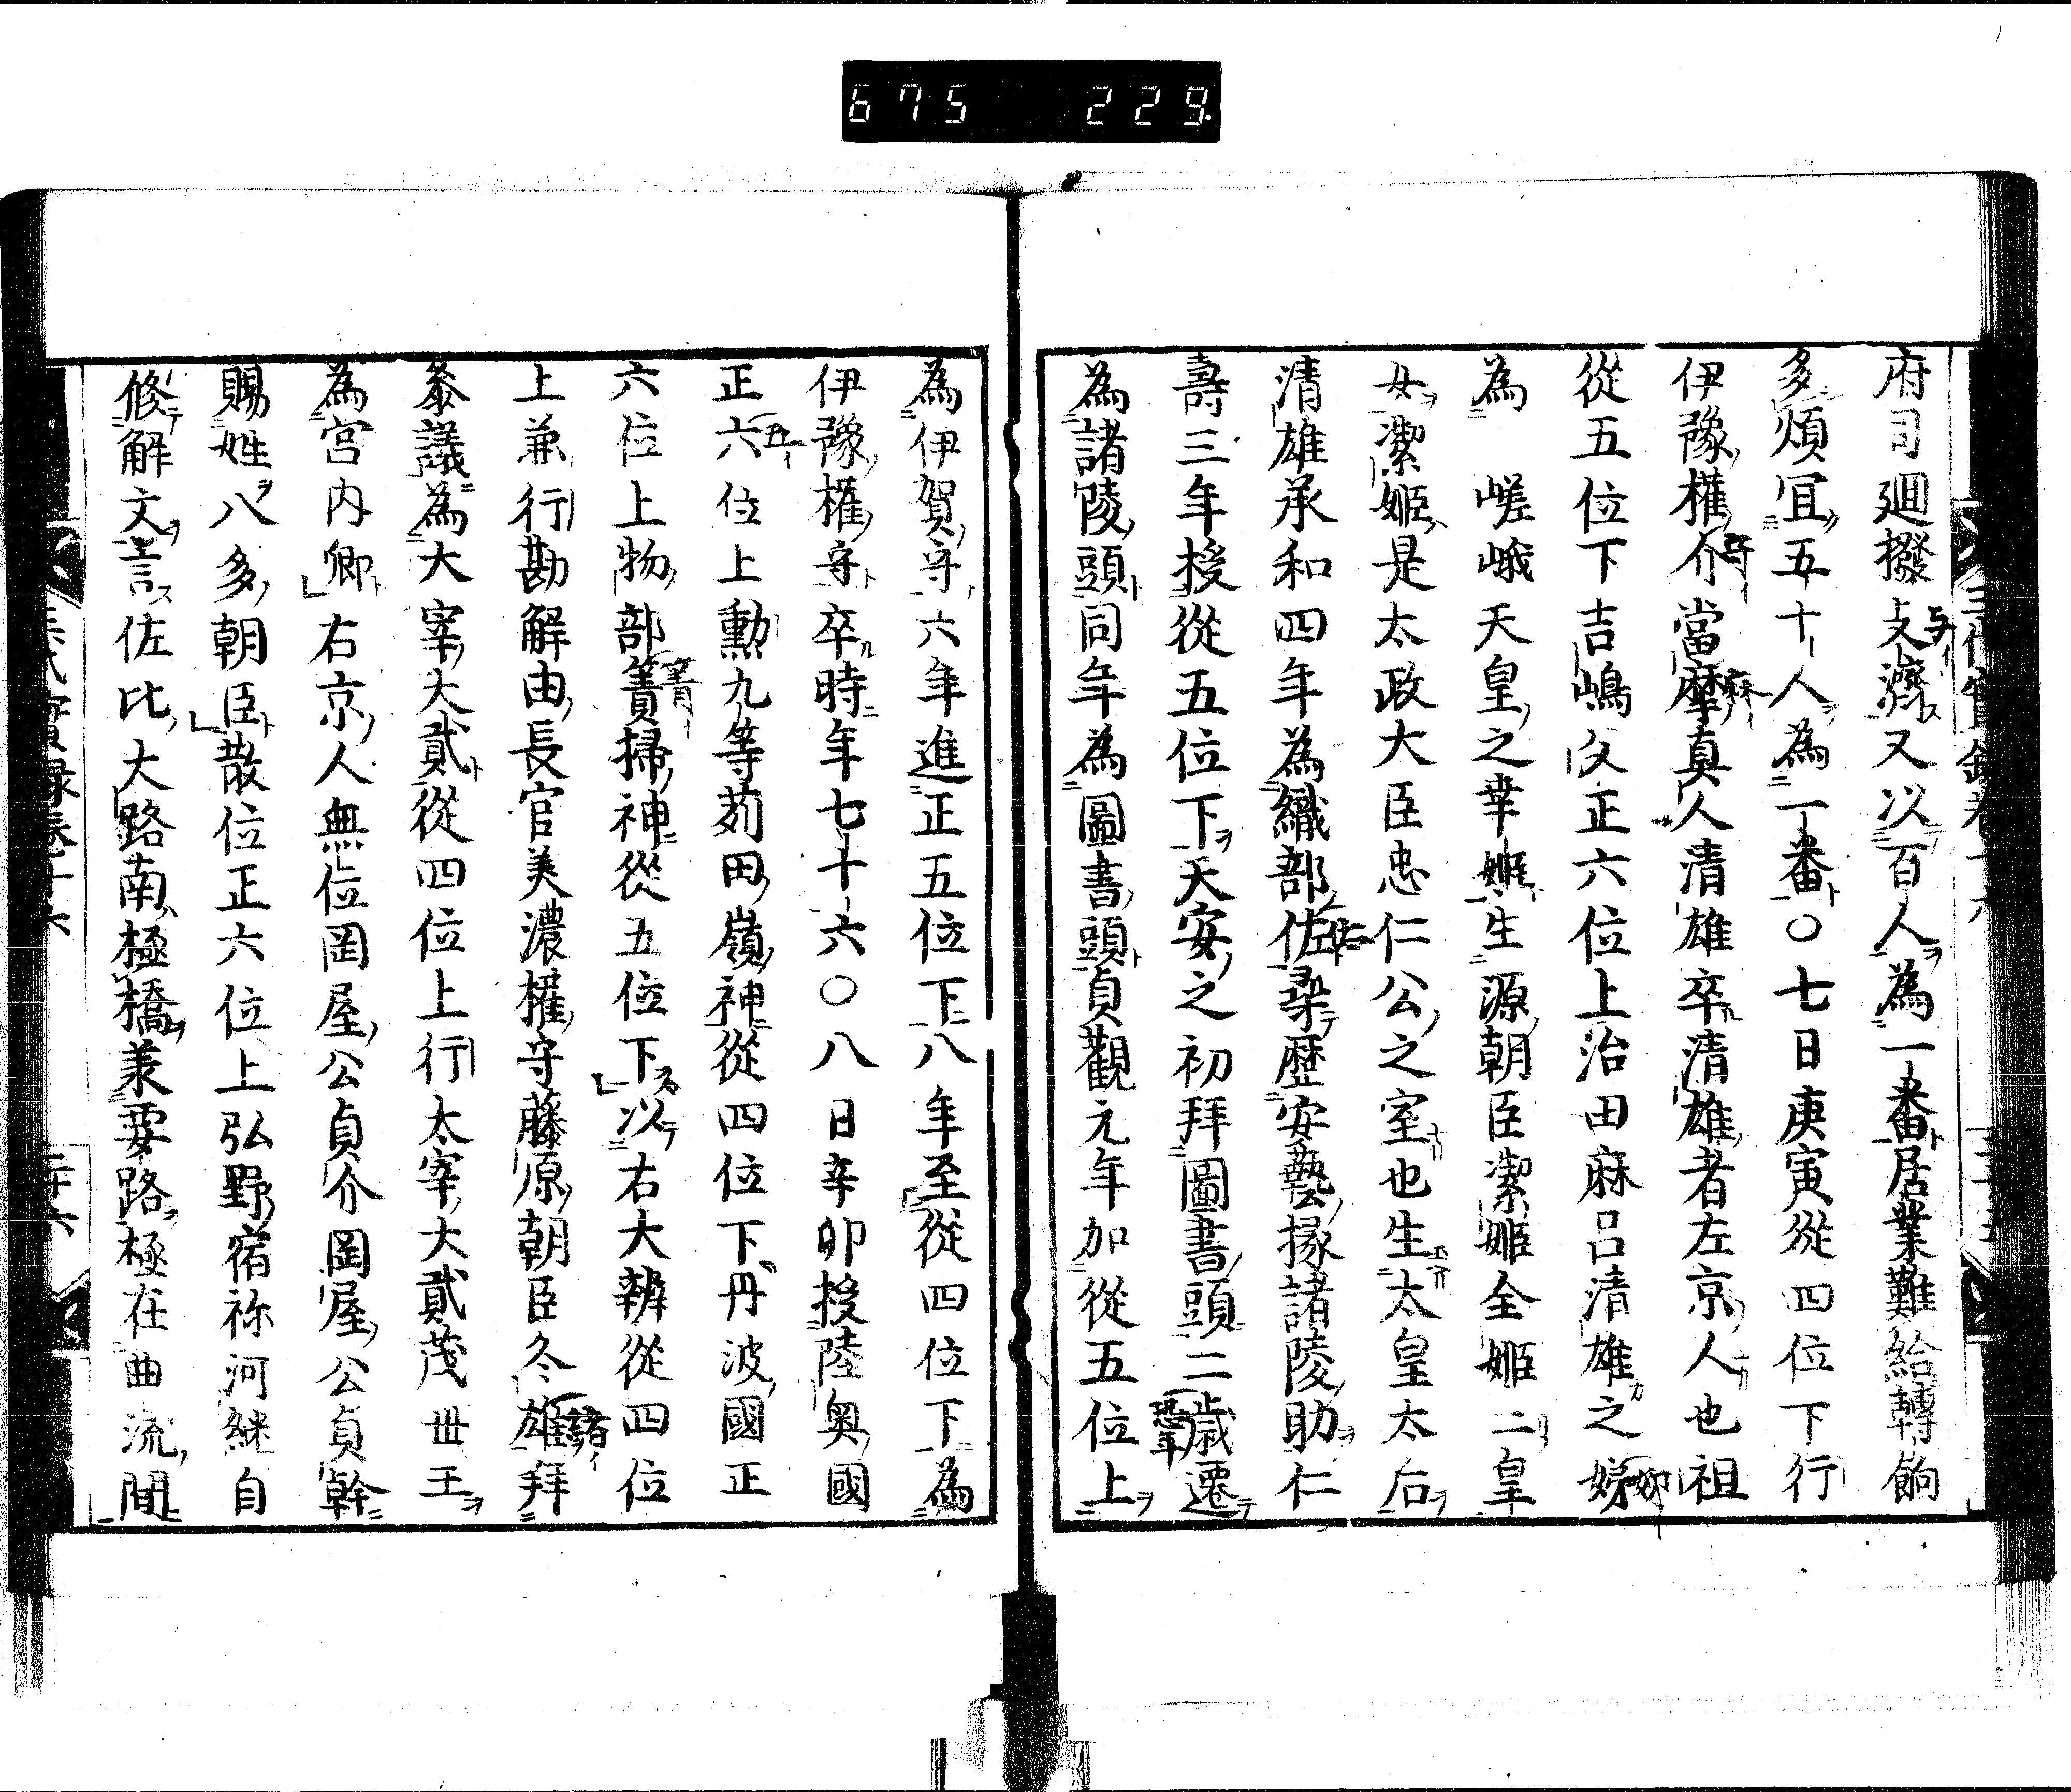 675 229
府司廻撥支濟又以百人為一番居業難給轉餉
多煩冝五十人為一番〇七日庚寅從四位下行
伊豫權介當摩真人清雄卒清雄者左京人也祖
從五位下吉嶋父正六位上治田麻呂清雄之娣
為 嵯峨天皇之幸姬生源朝臣潔姬全姬二皇
女潔姬是太政大臣忠仁公之室也生太皇太后
清雄承和四年為織部佐累歷安藝掾諸陵助仁
壽三年授從五位下天安之初拜圖書頭二歳遷
為諸陵頭同年為圖書頭貞觀元年加從五位上
為伊賀守六年進正五位下八年至從四位下為
伊豫權守卒時年七十六〇八日辛卯授陸奥國
正六位上勳九等苅田嶺神從四位下丹波國正
六位上物部簀掃神從五位下以右大辨從四位
上兼行勘解由長官美濃權守藤原朝臣冬雄拜
叅議為大宰大貳從四位上行太宰大貳茂世王
為宮内卿右京人無位岡屋公貞介岡屋公貞幹
賜姓八多朝臣散位正六位上弘野宿祢河継自
修解文言佐比大路南極橋羕要路極在曲流間